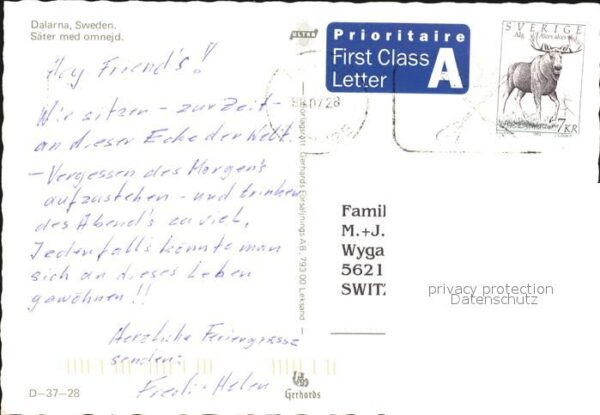 Dalarna, Sweden.
Säter med omnejd.
ULTRA
Prioritaire
First Class
Letter
A
SVERIGE
Älg Alces alces
7 KR
Hey Friend's!
Wir sitzen - zur Zeit -
an dieser Ecke der Welt.
- Vergessen des Morgen's
aufzustehen - und trinken
des Abend's zu viel,
Jedenfalls könnte man
sich an dieses Leben
gewöhnen!!
Herzliche Feriengrüsse
senden:
Fredi + Helen
Gerhards Försäljnings AB, 793 00 Leksand
Famil
M.+J.
Wyga
5621
SWITZ
privacy protection
Datenschutz
D-37-28
Gerhards